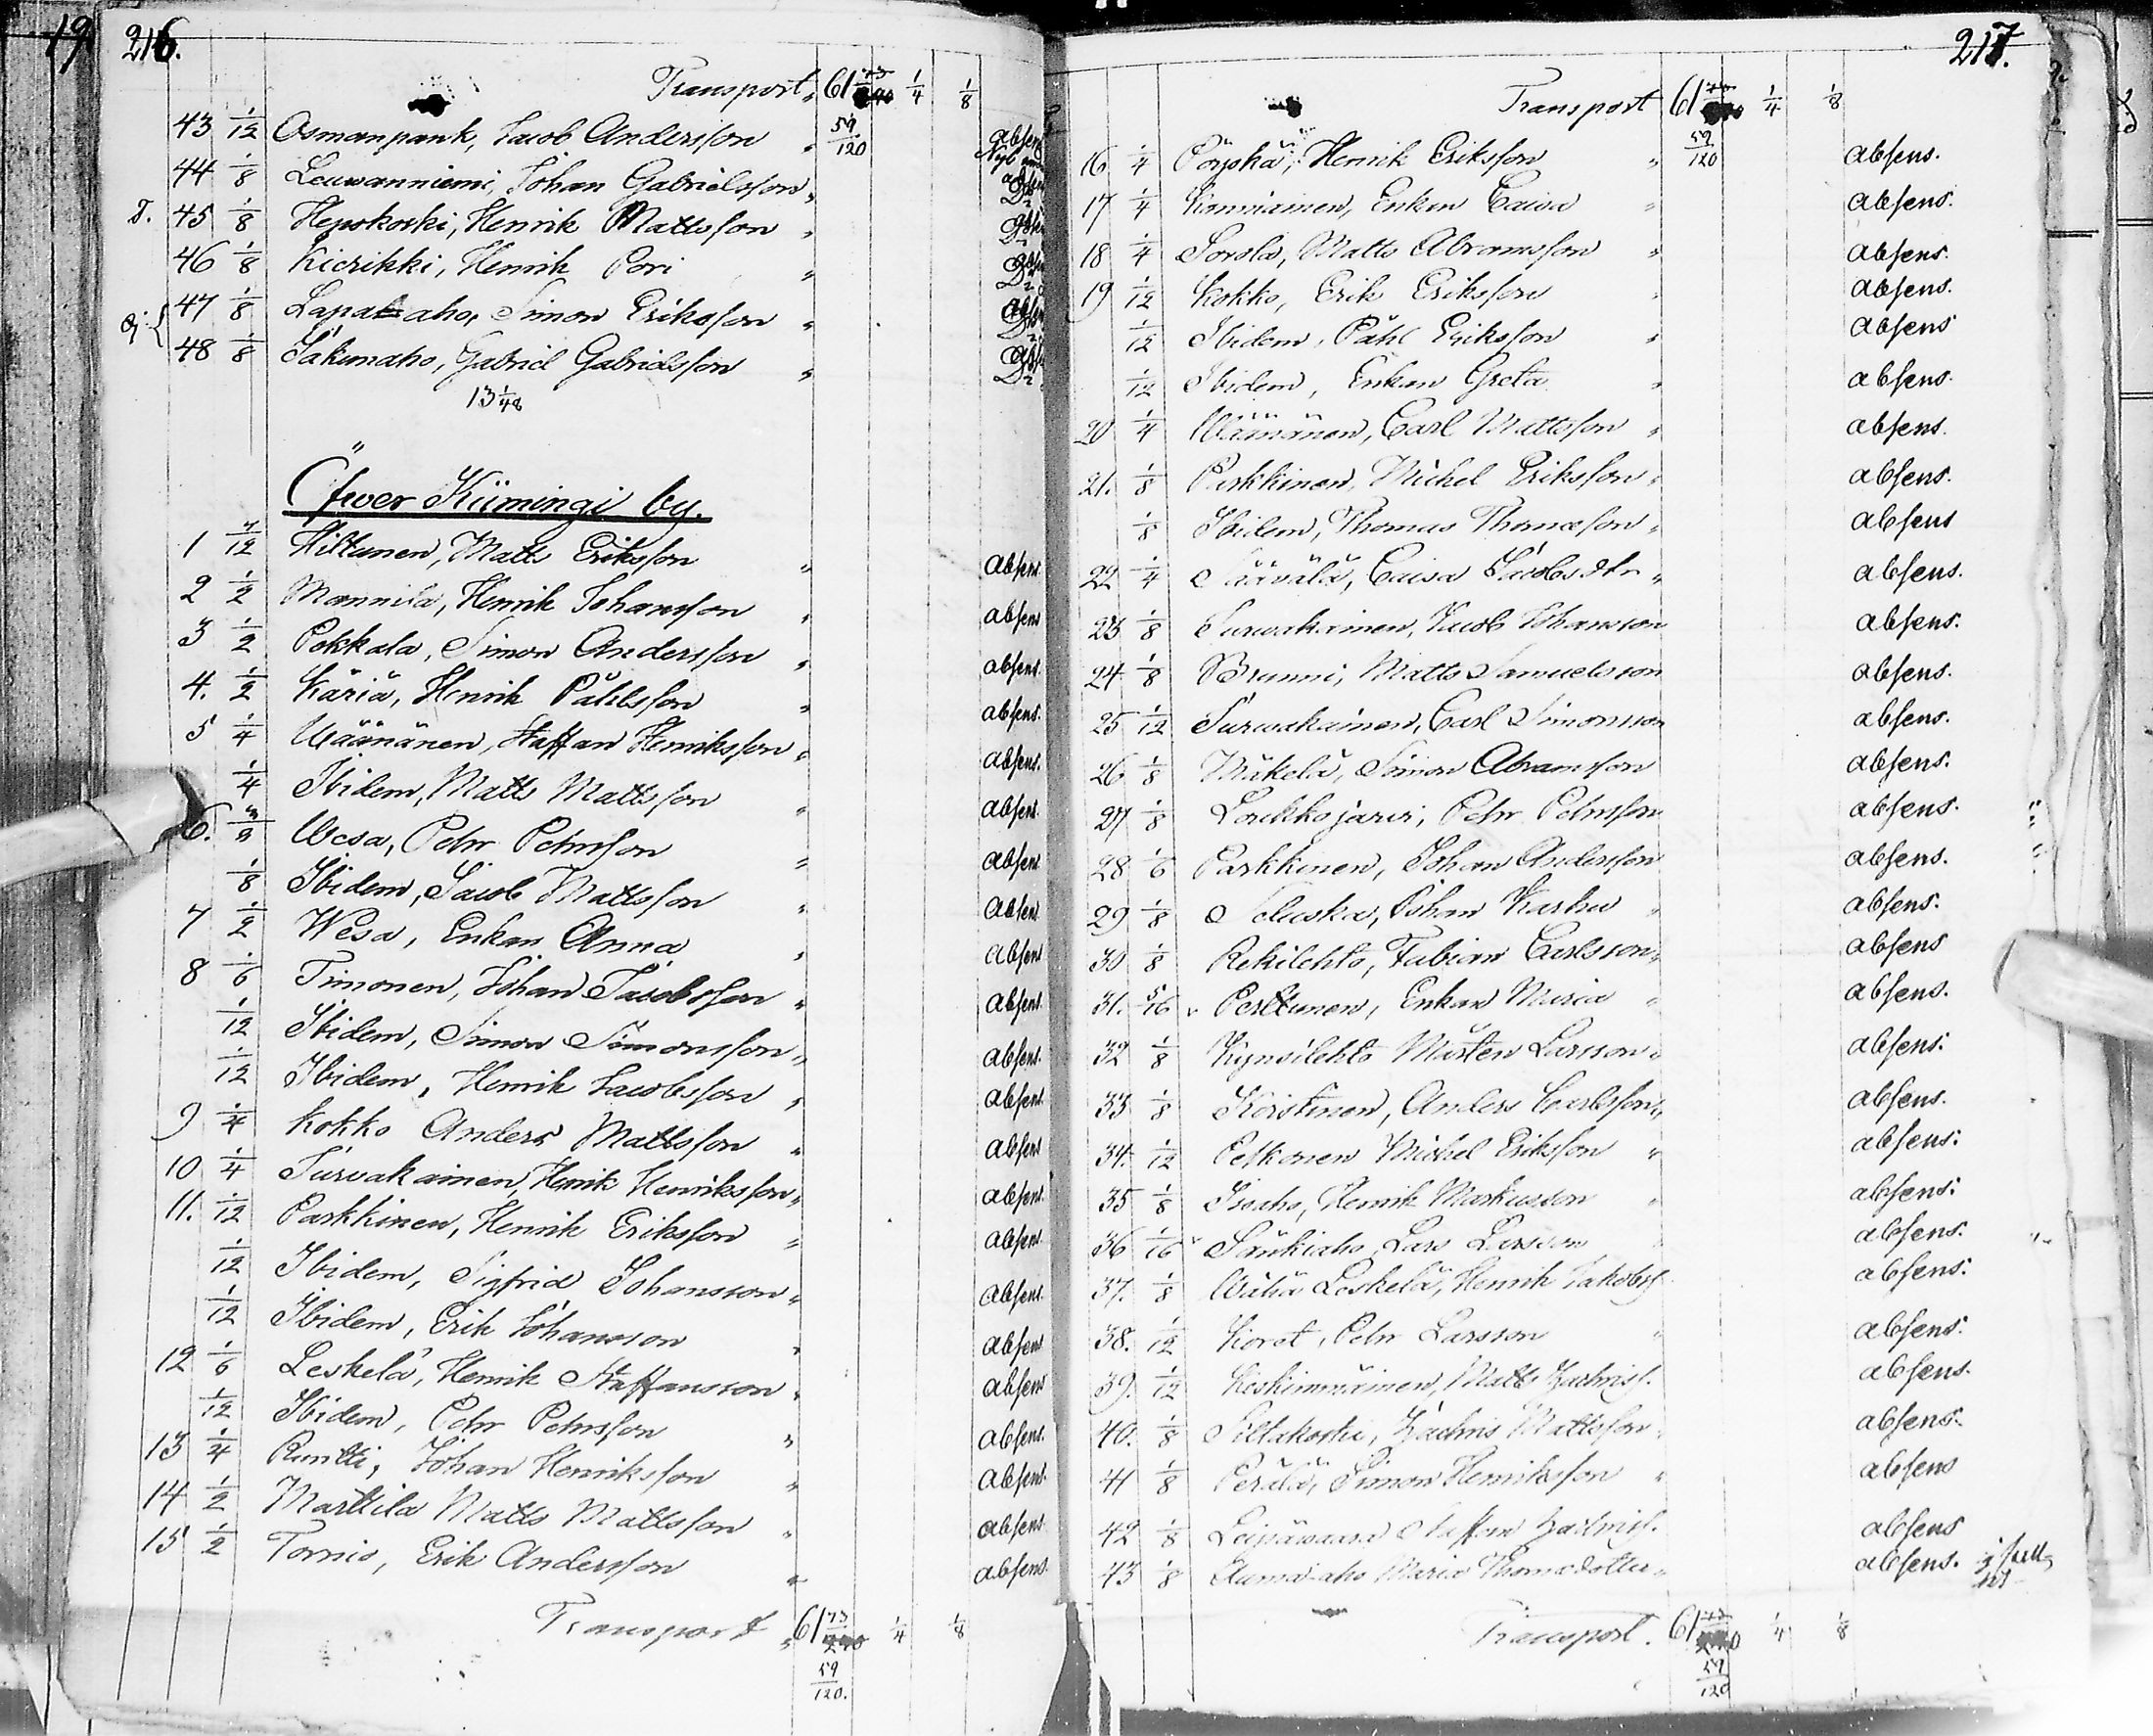 216.
Transport " 61 1/4 1/8
59/120
43 1/12 Osmanpank, Jacob Andersson "
44 1/8 Leuwanniemi, Johan Gabrielsson "
45 1/8 Hepokoski, Henrik Mattsson "
46 1/8 Kierikki, Henrik Pori "
47 1/8 Lapat aho, Simon Eriksson "
48 1/8 Jakunaho, Gabriel Gabrielsson "
13 1/48
Öfwer Kiimingi by.
1 7/12 Hiltunen, Matts Eriksson " absens.
2 1/2 Mannila, Henrik Johansson " absens
3 1/2 Pokkala, Simon Andersson " absens.
4. 1/2 Käriä, Henrik Påhlsson " absens.
5 1/4 Wäänänen, Staffan Henriksson " absens.
1/4 Ibidem, Matts Mattsson " absens.
6. Wesa, Petr Petersson " absens
1/8 Ibidem, Jacob Mattsson " absens
7 1/2 Wesa, Enkan Anna " absens
8 1/6 Timonen, Johan Jacobsson " absens.
1/12 Ibidem, Simon Simonsson " absens.
1/12 Ibidem, Henrik Jacobsson " absens.
9 1/4 Kokko Anders Mattsson " absens
10 1/4 Turwakainen, Henrik Henriksson " absens.
11. 1/12 Parkkinen, Henrik Eriksson " absens.
1/12 Ibidem, Sigfrid Johansson " absens.
1/12 Ibidem, Erik Johansson " absens
12 1/6 Leskelä, Henrik Staffansson " absens
1/12 Ibidem, Petr Petersson " absens.
13 1/4 Runtti, Johan Henriksson " absens.
14 1/2 Marttila Matts Mattsson " absens.
15 1/2 Tornio, Erik Andersson " absens.
Transport " 61 1/4 1/8
59/120.
217.
Transport 61 1/4 1/8
59/120
16 1/4 Pöyskä, Henrik Eriksson " absens.
17 1/4 Kanniainen, Enkan Caisa " absens.
18 1/4 Sorola, Matts Abramsson " absens.
19 1/12 Kokko, Erik Eriksson " absens.
1/12 Ibidem, Påhl Eriksson " absens
1/12 Ibidem, Enkan Greta " absens.
20 1/4 Wäänänen, Carl Mattsson " absens.
21. 1/8 Parkkinen, Michel Eriksson " absens.
1/8 Ibidem, Thomas Thomasson " absens
22 1/4 Säävälä, Caisa Jacobsdtr " absens.
23 1/8 Turwakainen, Jacob Johansson absens.
24 1/8 Brunni, Matts Samuelsson absens.
25 1/12 Turwakainen, Carl Simonsson absens.
26 1/8 Mäkelä, Simon Abramsson absens.
27 1/8 Loukkojärvi, Petr Petersson absens.
28 1/6 Parkkinen, Johan Andersson absens.
29 1/8 Seluska, Johan Karhu " absens.
30 1/8 Rekilehto, Fabian Carlsson " absens
31. 5/16 Perttunen, Enkan Maria " absens.
32 1/8 Kynsilehto Mårten Larsson " absens.
33 1/8 Koistinen, Anders Carlsson " absens.
34. 1/12 Petkonen Michel Eriksson " absens.
35 1/8 Isoaho, Henrik Markusson " absens.
36 1/16 Särkiaho, Lars Larsson " absens.
37. 1/8 Wähä Leskelä, Henrik Jakobss. absens.
38. 1/12 Koret, Petr Larsson " absens.
39. 1/12 Keskimmäinen, Matts Zachriss. absens.
40. 1/8 Siltakoski, Zachris Mattsson absens.
41 1/8 Perälä, Simon Henriksson " absens
42 1/8 Leipäwaara Staffan Zachriss. absens
43 1/8 aho Maria Thomædotter " absens.
Transport. 61 1/4 1/8
59/120